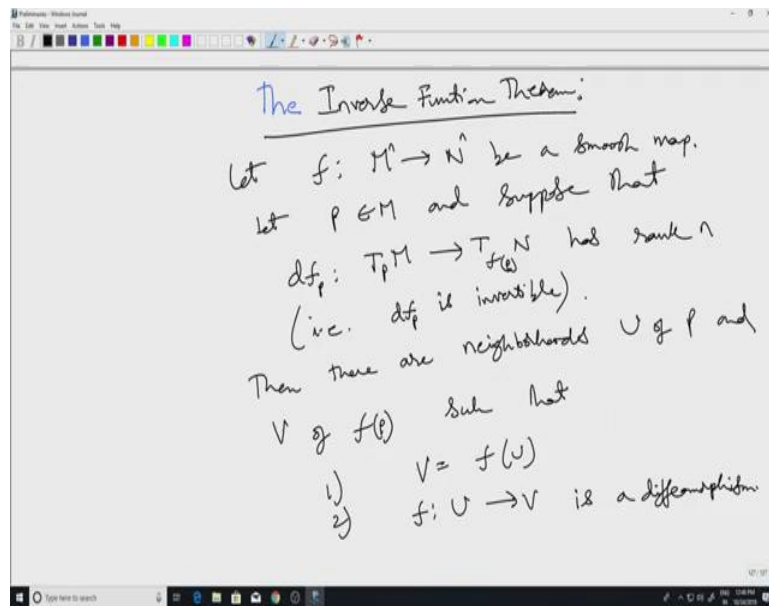 Preliminaries - Windows Journal
File Edit View Insert Actions Tools Help
The Inverse Funtion Theorem:
Let f: Mⁿ → Nⁿ be a smooth map.
Let p ∈ M and suppose that
df_p: T_p M → T_{f(p)} N has rank n
(i.e. df_p is invertible).
Then there are neighborhoods U of p and
V of f(p) such that
1) V = f(U)
2) f: U → V is a diffeomorphism.
Type here to search
ENG